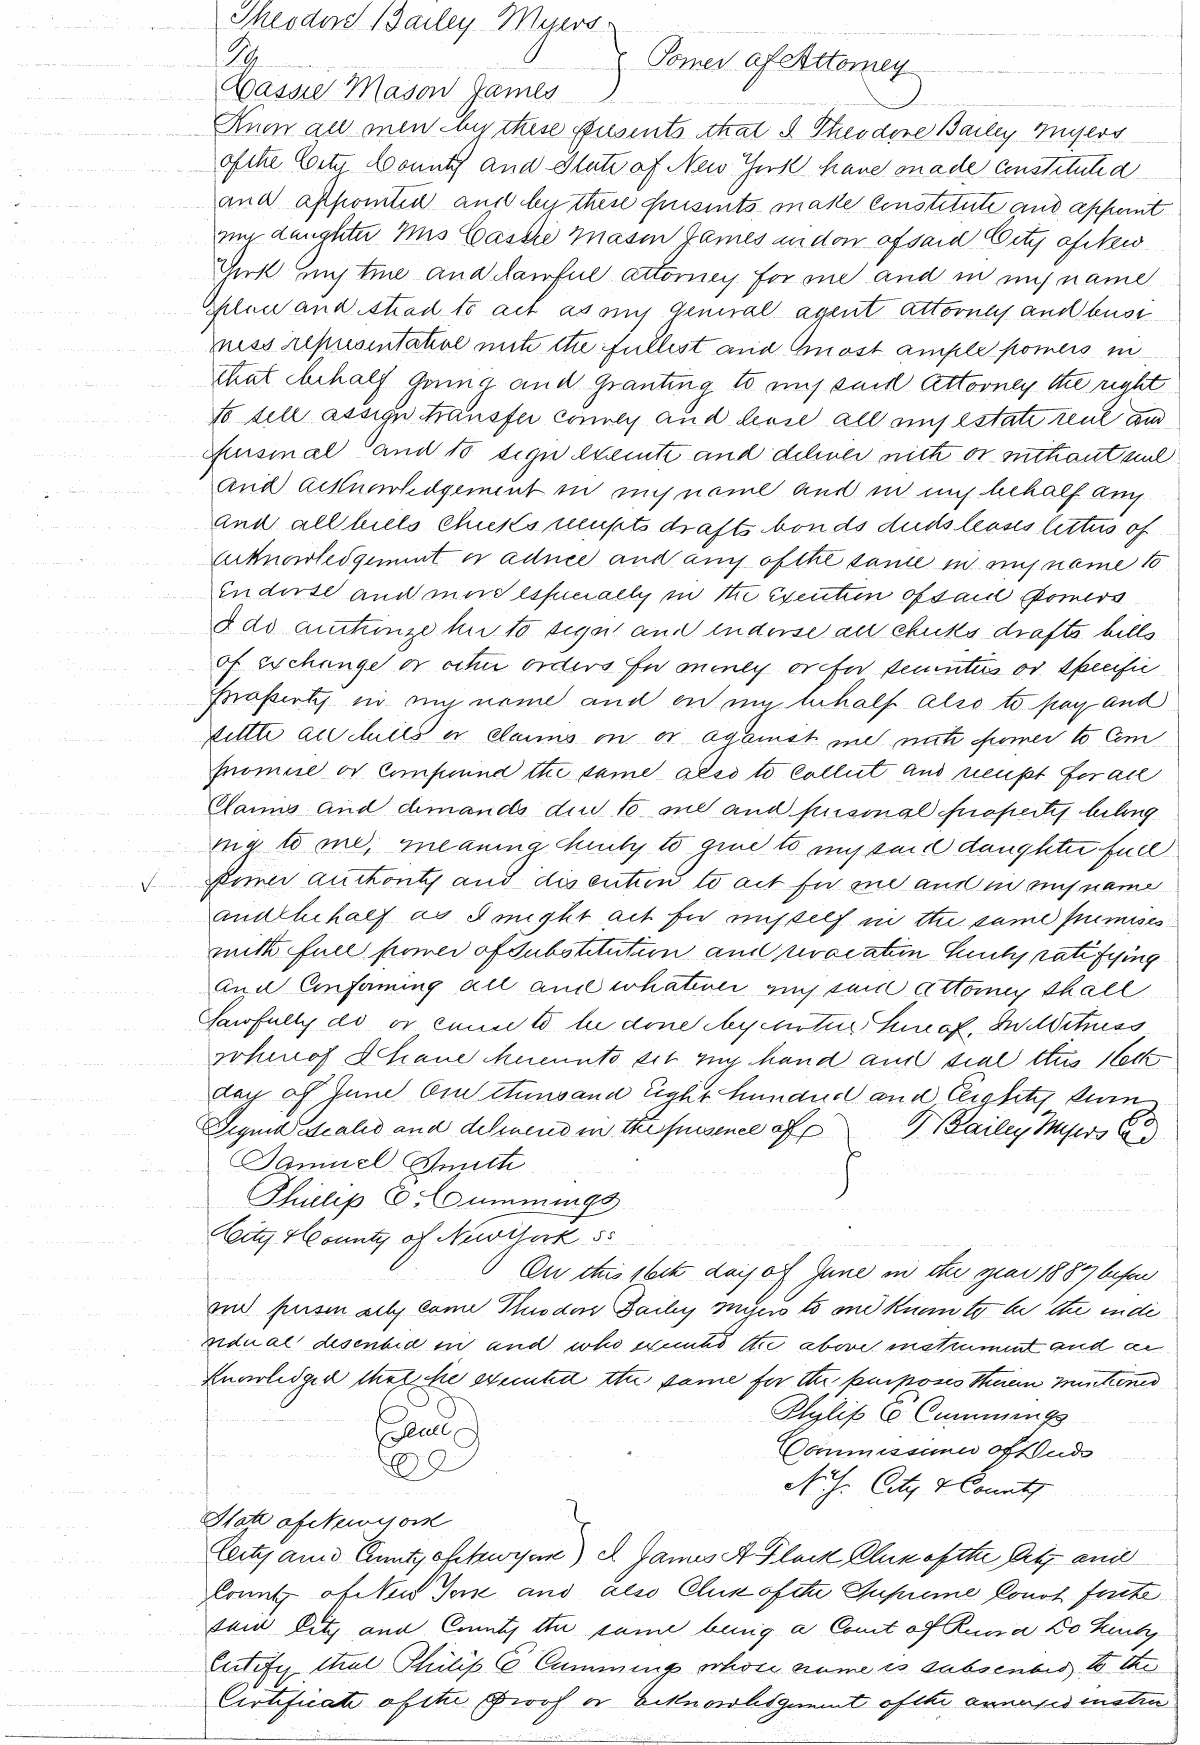 Theodore Bailey Myers
To
Power of Attorney
Cassie Mason James
Know all men by these presents that I Theodore Bailey Myers
of the City County and State of New York have made constituted
and appointed and by these presents make constitute and appoint
my daughter Mrs Cassie Mason James widow of said City of New
York my true and lawful attorney for me and in my name
place and stead to act as my general agent attorney and busi
ness representative with the fullest and most ample powers in
that behalf giving and granting to my said attorney the right
to sell assign transfer convey and lease all my estate real and
personal and to sign execute and deliver with or without seal
and acknowledgement in my name and in my behalf any
and all bills checks receipts drafts bonds deeds leases letters of
acknowledgement or advice and any of the same in my name to
endorse and more especially in the execution of said powers
I do authorize her to sign and endorse all checks drafts bills
of exchange or other orders for money or for securities or specific
property in my name and on my behalf also to pay and
settle all bills or claims on or against me with power to com
promise or compound the same also to collect and receipt for all
claims and demands due to me and personal property belong
ing to me, meaning hereby to give to my said daughter full
power authority and discretion to act for me and in my name
and behalf as I might act for myself in the same premises
with full power of substitution and revocation hereby ratifying
and confirming all and whatever my said attorney shall
lawfully do or cause to be done by virtue hereof. In Witness
whereof I have hereunto set my hand and seal this 16th
day of June One thousand Eight hundred and Eighty seven
Signed sealed and delivered in the presence of
T Bailey Myers
Samuel Smith
Phillip E. Cummings
City & County of New York ss
On this 16th day of June in the year 1887 before
me personally came Theodore Bailey Myers to me known to be the indi
vidual described in and who executed the above instrument and ac
knowledged that he executed the same for the purposes therein mentioned
Philip E Cummings
Seal
Commissioner of Deeds
N.Y. City & County
State of New york
City and County of New york ) I James A Flack Clerk of the City and
County of New York and also Clerk of the Supreme Court for the
said City and County the same being a Court of Record Do hereby
Certify that Philip E Cummings whose name is subscribed to the
Certificate of the proof or acknowledgement of the annexed instru